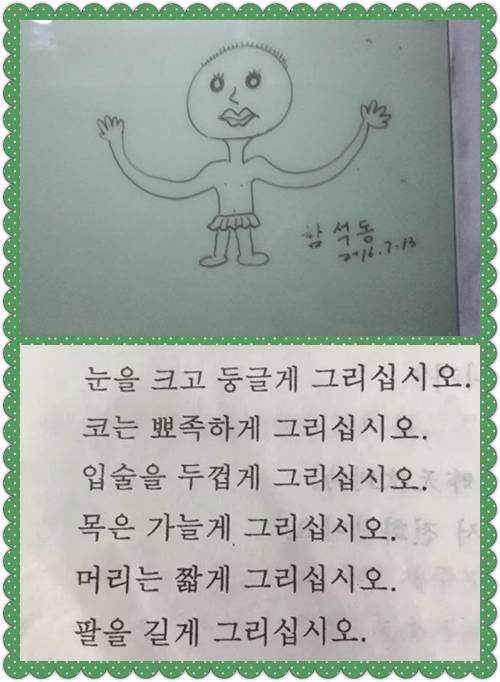 함석동
2016.7.13
눈을 크고 둥글게 그리십시오.
코는 뾰족하게 그리십시오.
입술을 두껍게 그리십시오.
목은 가늘게 그리십시오.
머리는 짧게 그리십시오.
팔을 길게 그리십시오.